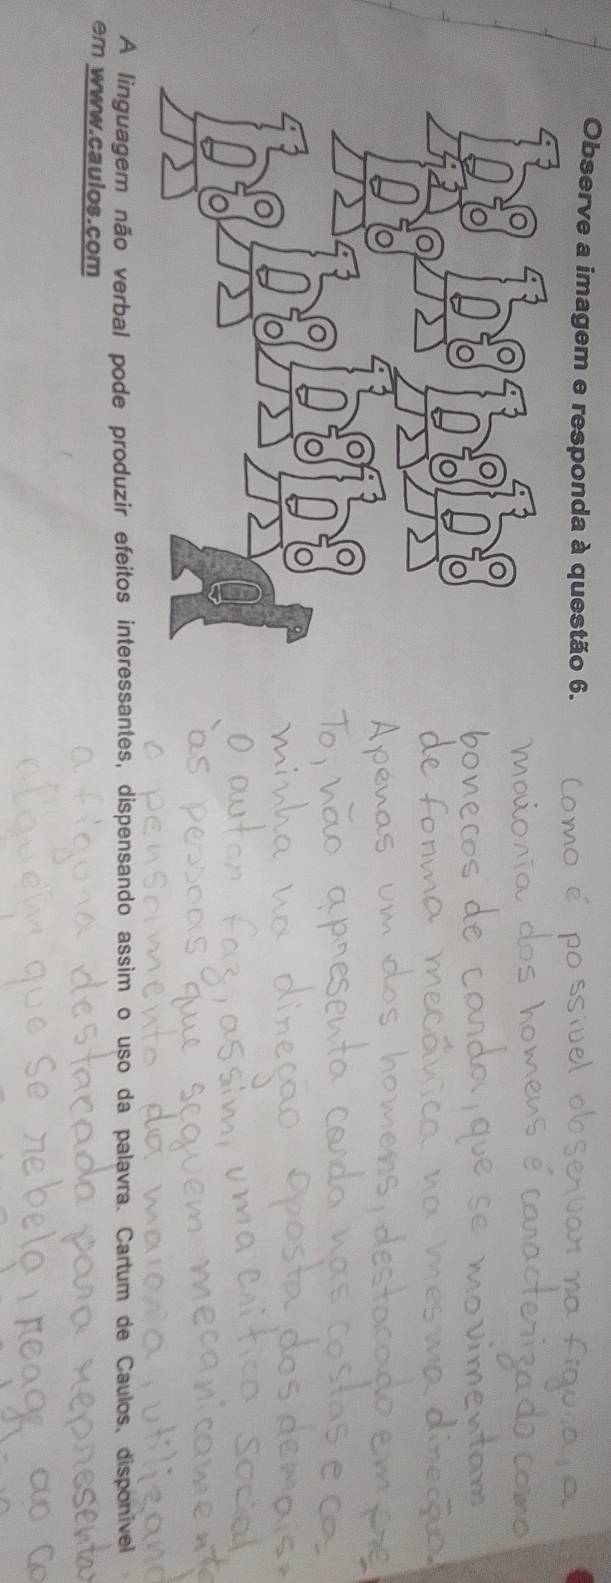 Observe a imagem e responda à questão 6.
como é possivel observar na figura, a
maioria dos homens é caracterizado como
bonecos de corda, que se movimentam
de forma mecânica na mesma direção.
Apenas um dos homens, destacado em pre-
To, não apresenta corda nas costas e ca-
minha na direção oposta dos demais.
O autor faz, assim, uma critica social
às pessoas que seguem mecanicamente
o pensamento da maioria, utilizand
a figura destacada para representar
alguém que se rebela, reage ao co
A linguagem não verbal pode produzir efeitos interessantes, dispensando assim o uso da palavra. Cartum de Caulos, disponível
em www.caulos.com